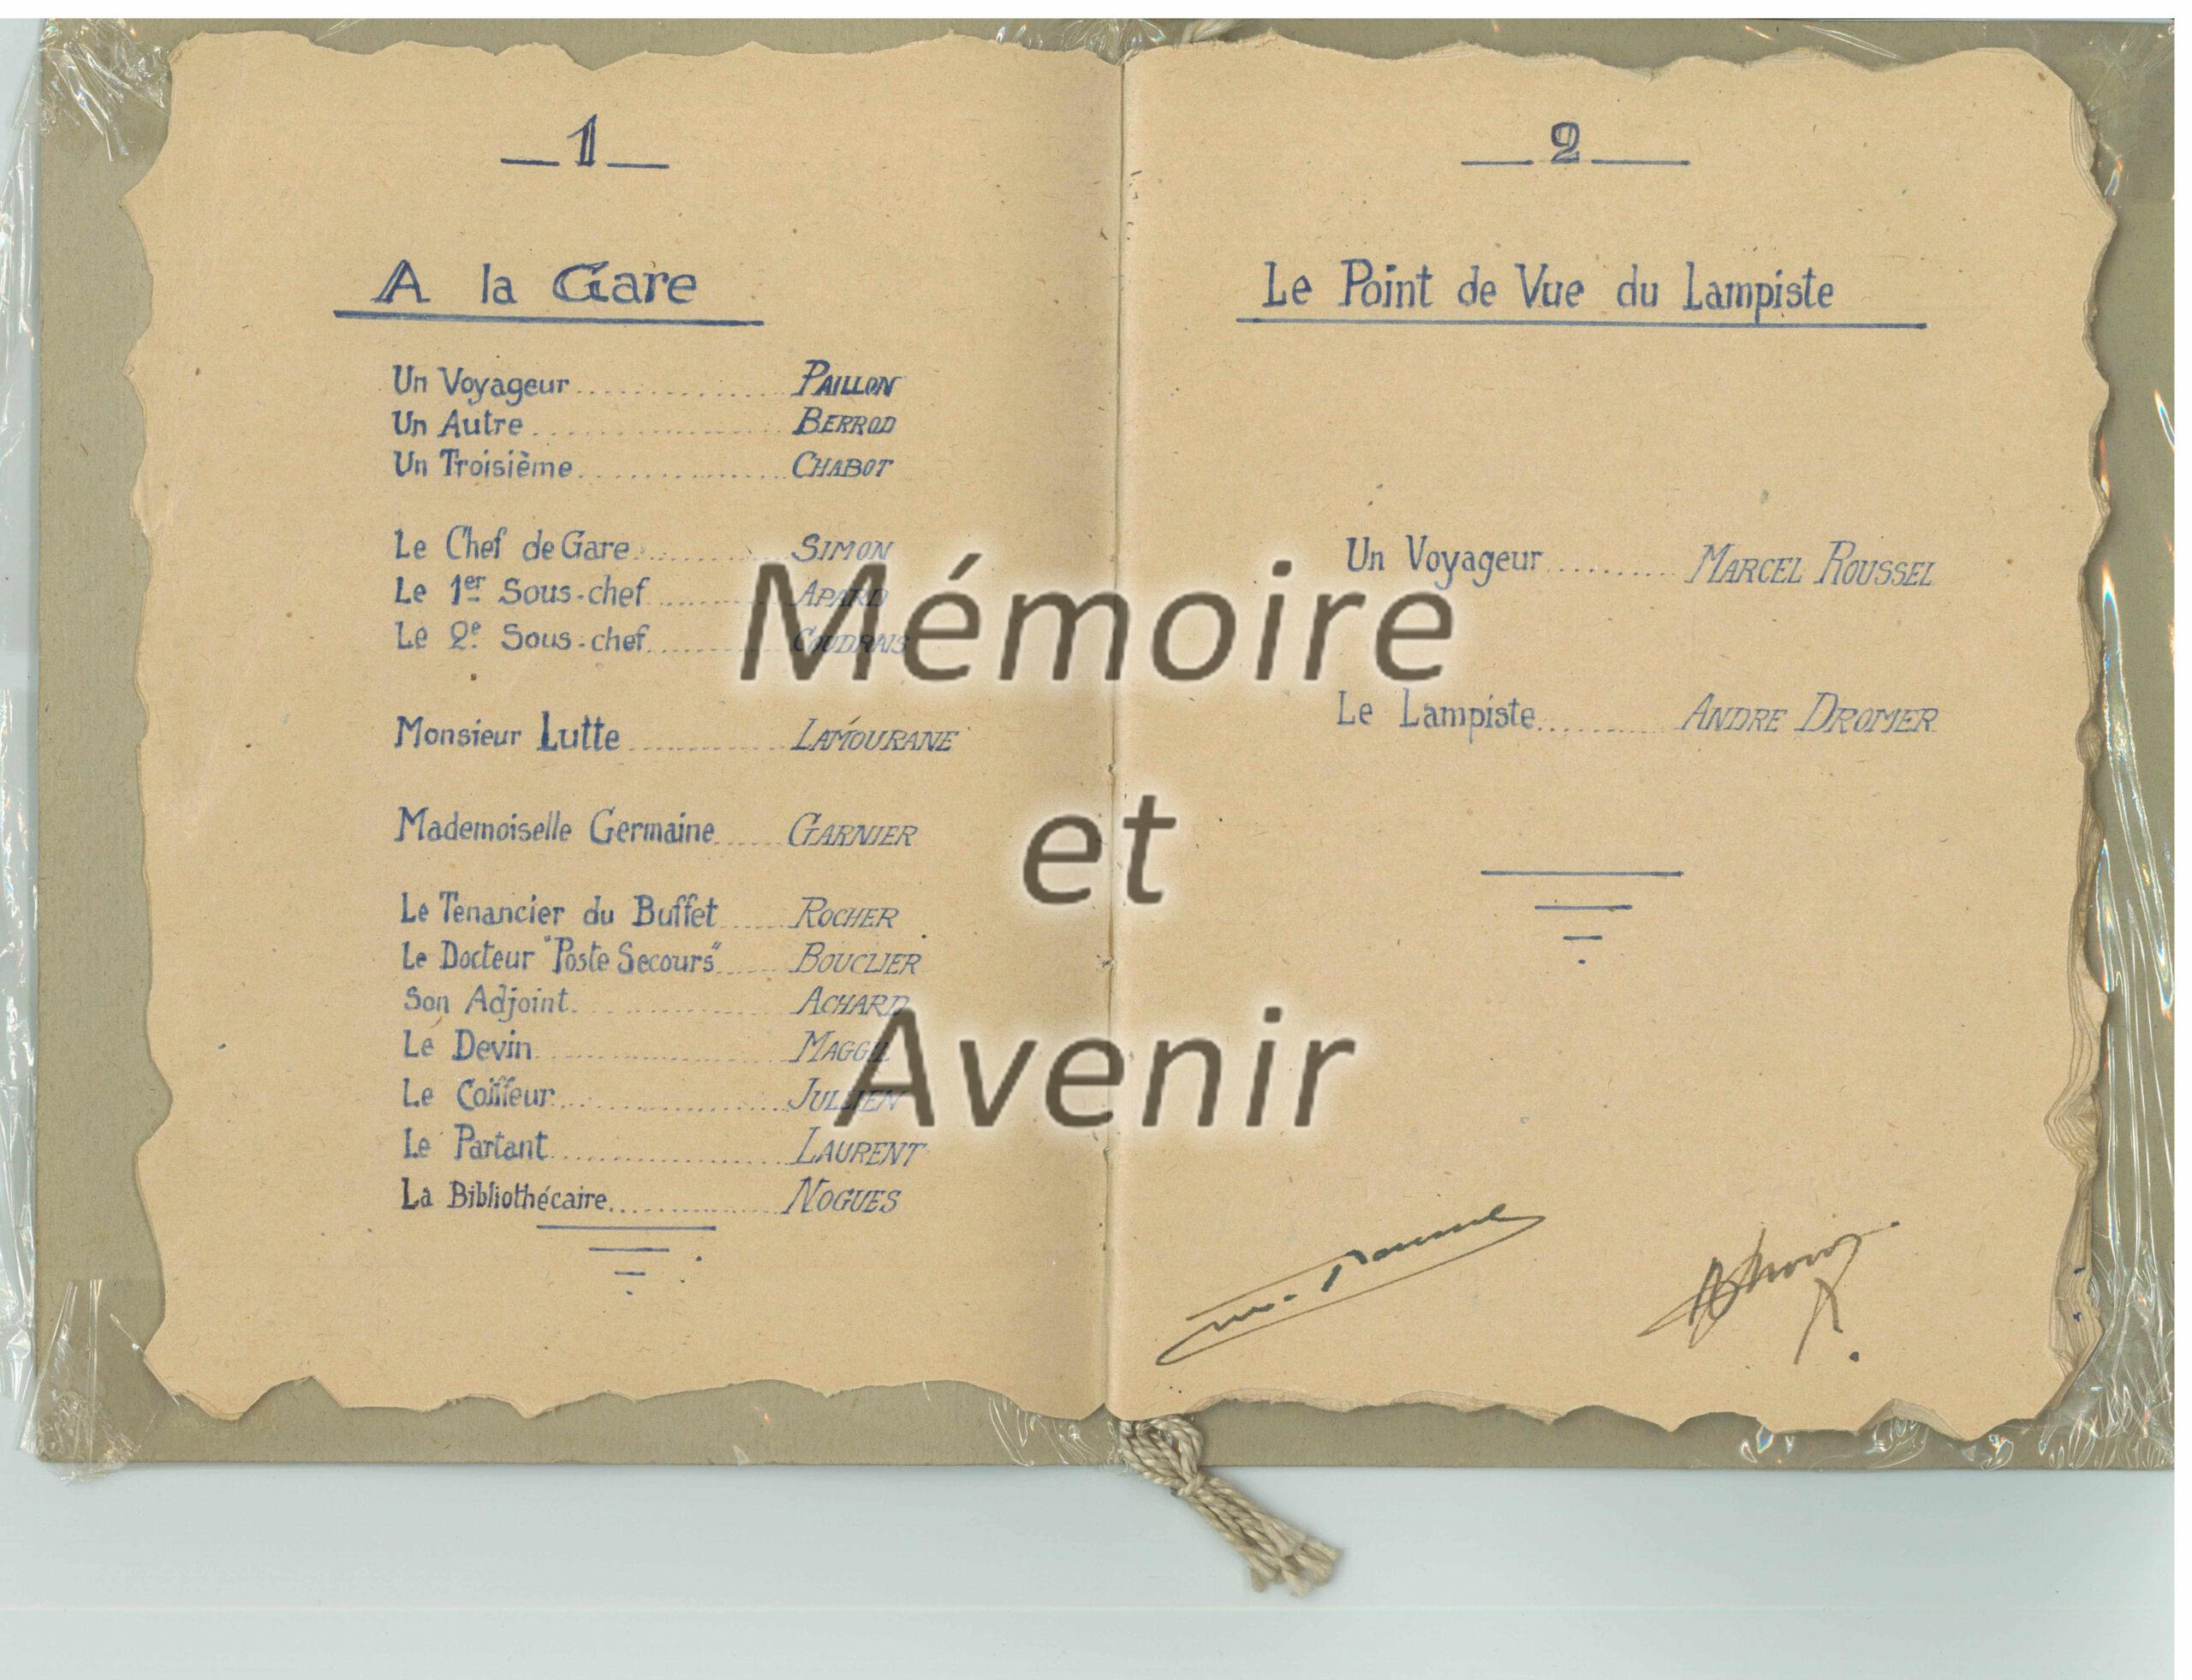 1
A la Gare
Un Voyageur.............. PAILLON
Un Autre.................. BERROD
Un Troisième............... CHABOT
Le Chef de Gare............ SIMON
Le 1er Sous-chef........... APARD
Le 2e Sous-chef........... COUDRAIS
Monsieur Lutte............ LAMOURANE
Mademoiselle Germaine...... GARNIER
Le Tenancier du Buffet...... ROCHER
Le Docteur "Poste Secours"...... BOUCLIER
Son Adjoint............... ACHARD
Le Devin..................
Le Coiffeur............... JULLIEN
Le Partant................ LAURENT
La Bibliothécaire........... NOGUES
2
Le Point de Vue du Lampiste
Un Voyageur.......... MARCEL ROUSSEL
Le Lampiste.......... ANDRE DROMER
Mémoire
et
Avenir